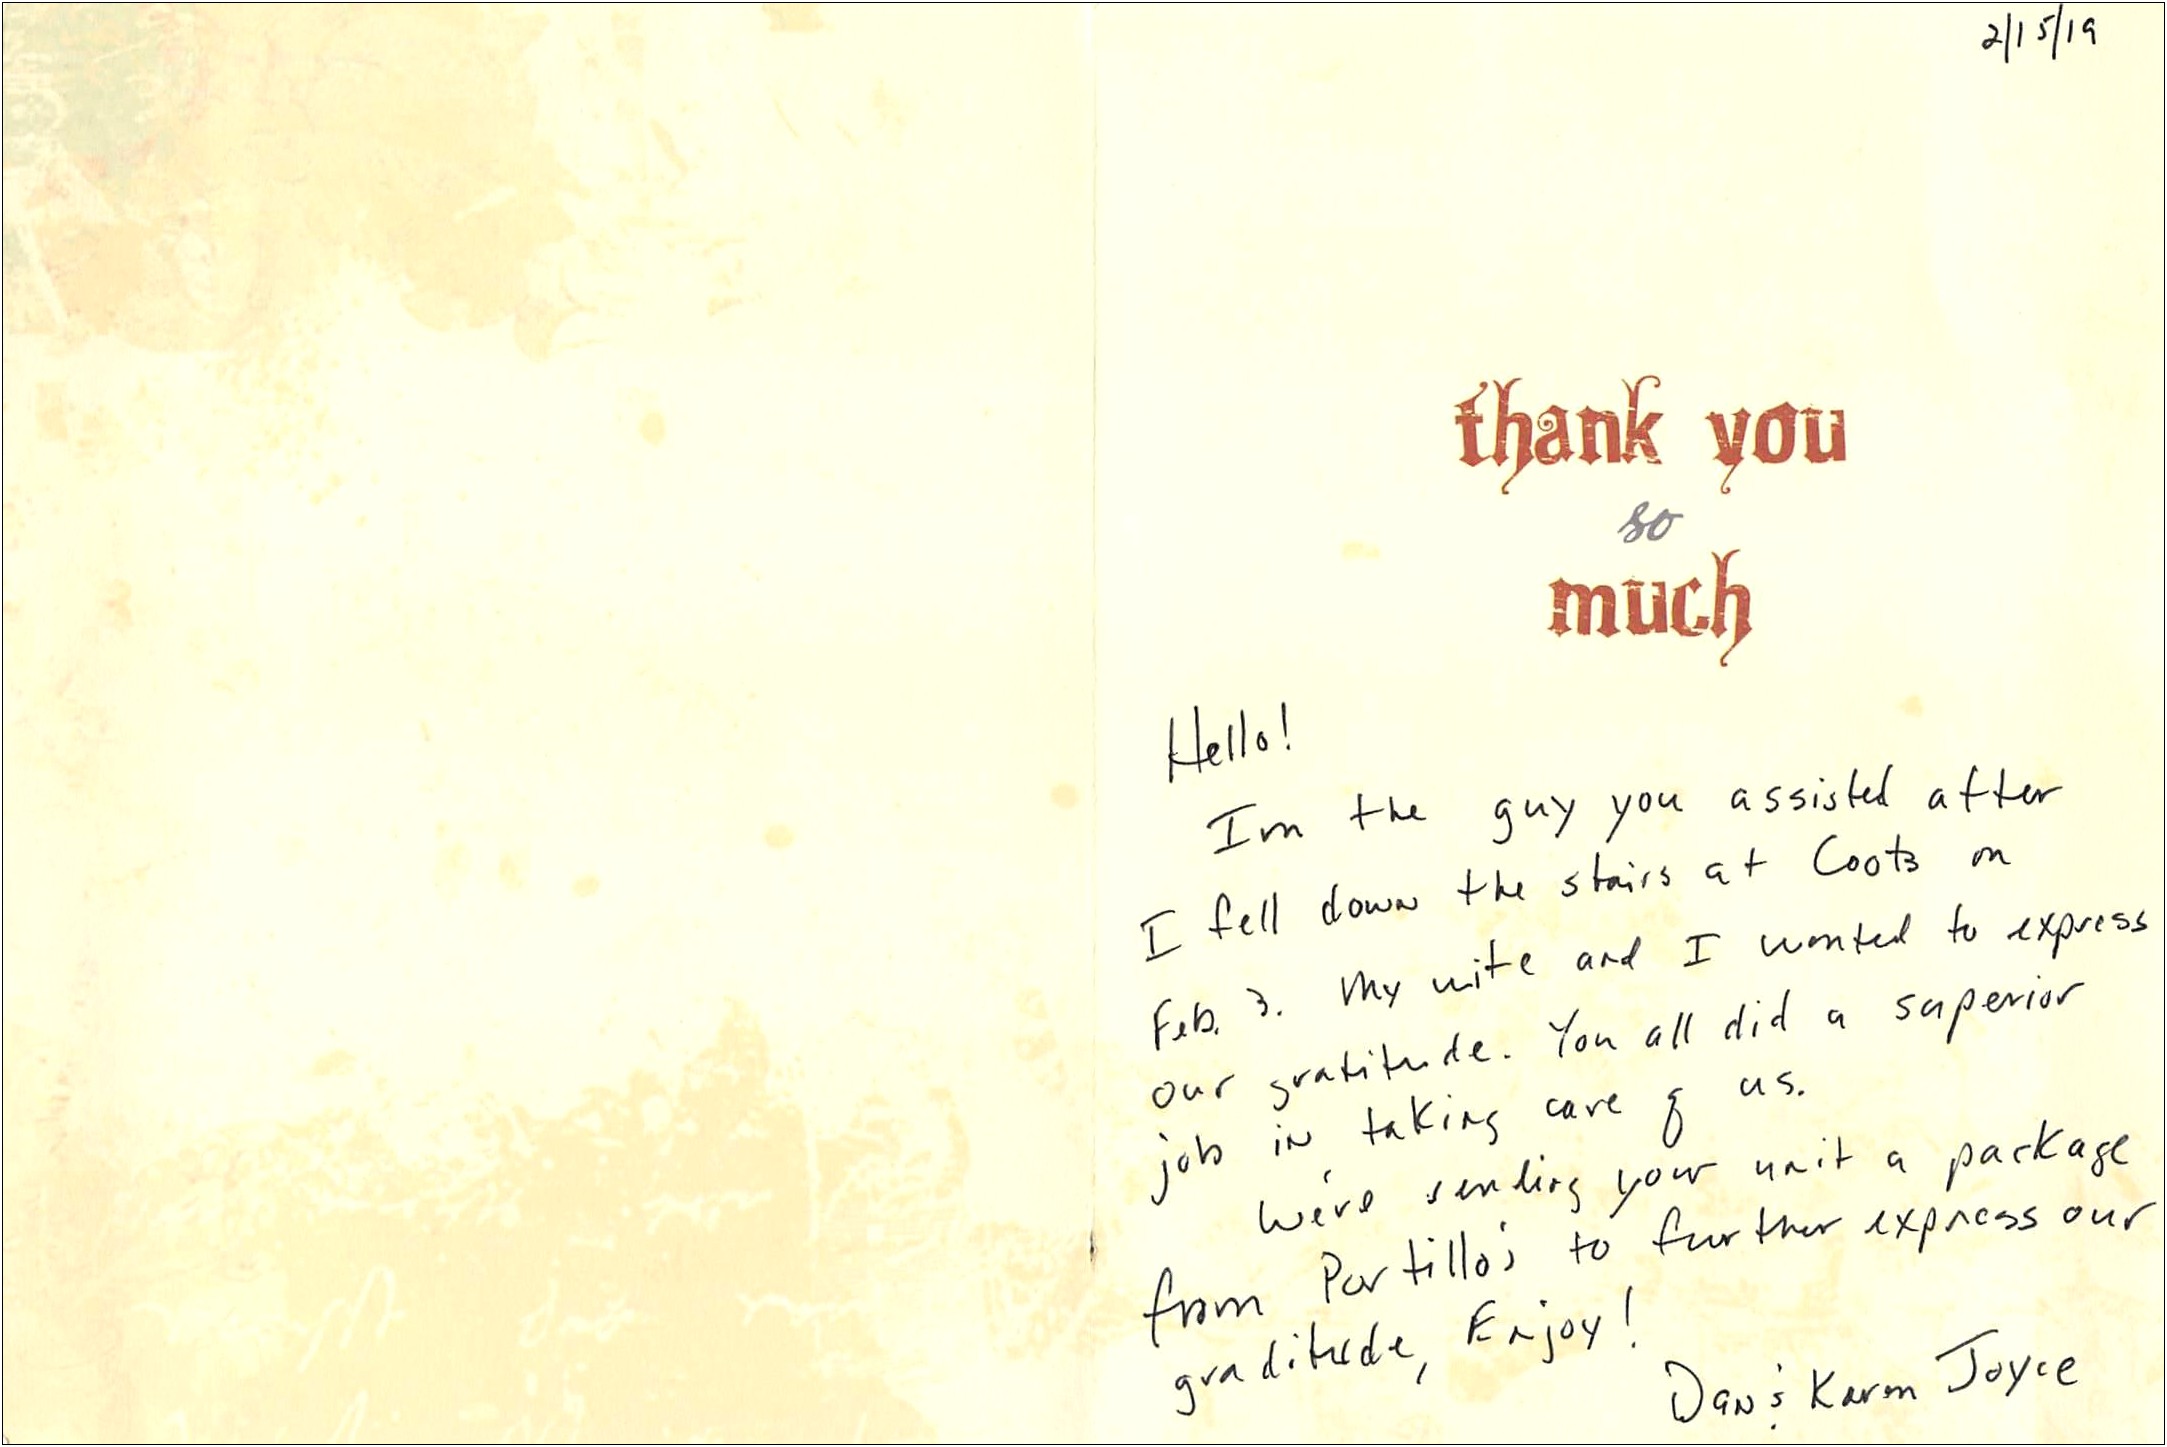 2/15/19
thank you
so
much
Hello!
I'm the guy you assisted after
I fell down the stairs at Coots on
Feb. 3. My wife and I wanted to express
our gratitude. You all did a superior
job in taking care of us.
We're sending your unit a package
from Portillo's to further express our
graditude, Enjoy!
Dan & Karen Joyce